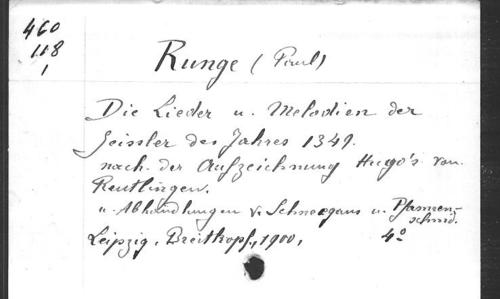 460
118
1
Runge (Paul)
Die Lieder u. Melodien der
Geissler des Jahres 1349.
nach der Aufzeichnung Hugo's von
Reutlingen.
u. Abhandlungen v. Schneegans u. Pfannen-
schmid.
Leipzig, Breitkopf, 1900, 4°